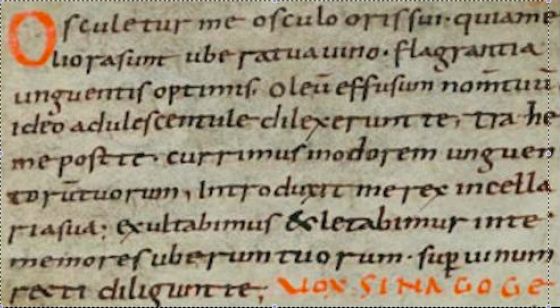 Osculetur me osculo oris sui · quia me
liora sunt ubera tua uino · flagrantia
unguentis optimis. Oleū effusum nom̄ tuū
ideo adulescentule dilexerunt te, tra he
me post te. currimus in odorem unguen
torū tuorum, Introduxit me rex in cella
ria sua; exultabimus & letabimur in te
memores uberum tuorum · sup uinum
recti diligunt te; UOX SINAGOGE